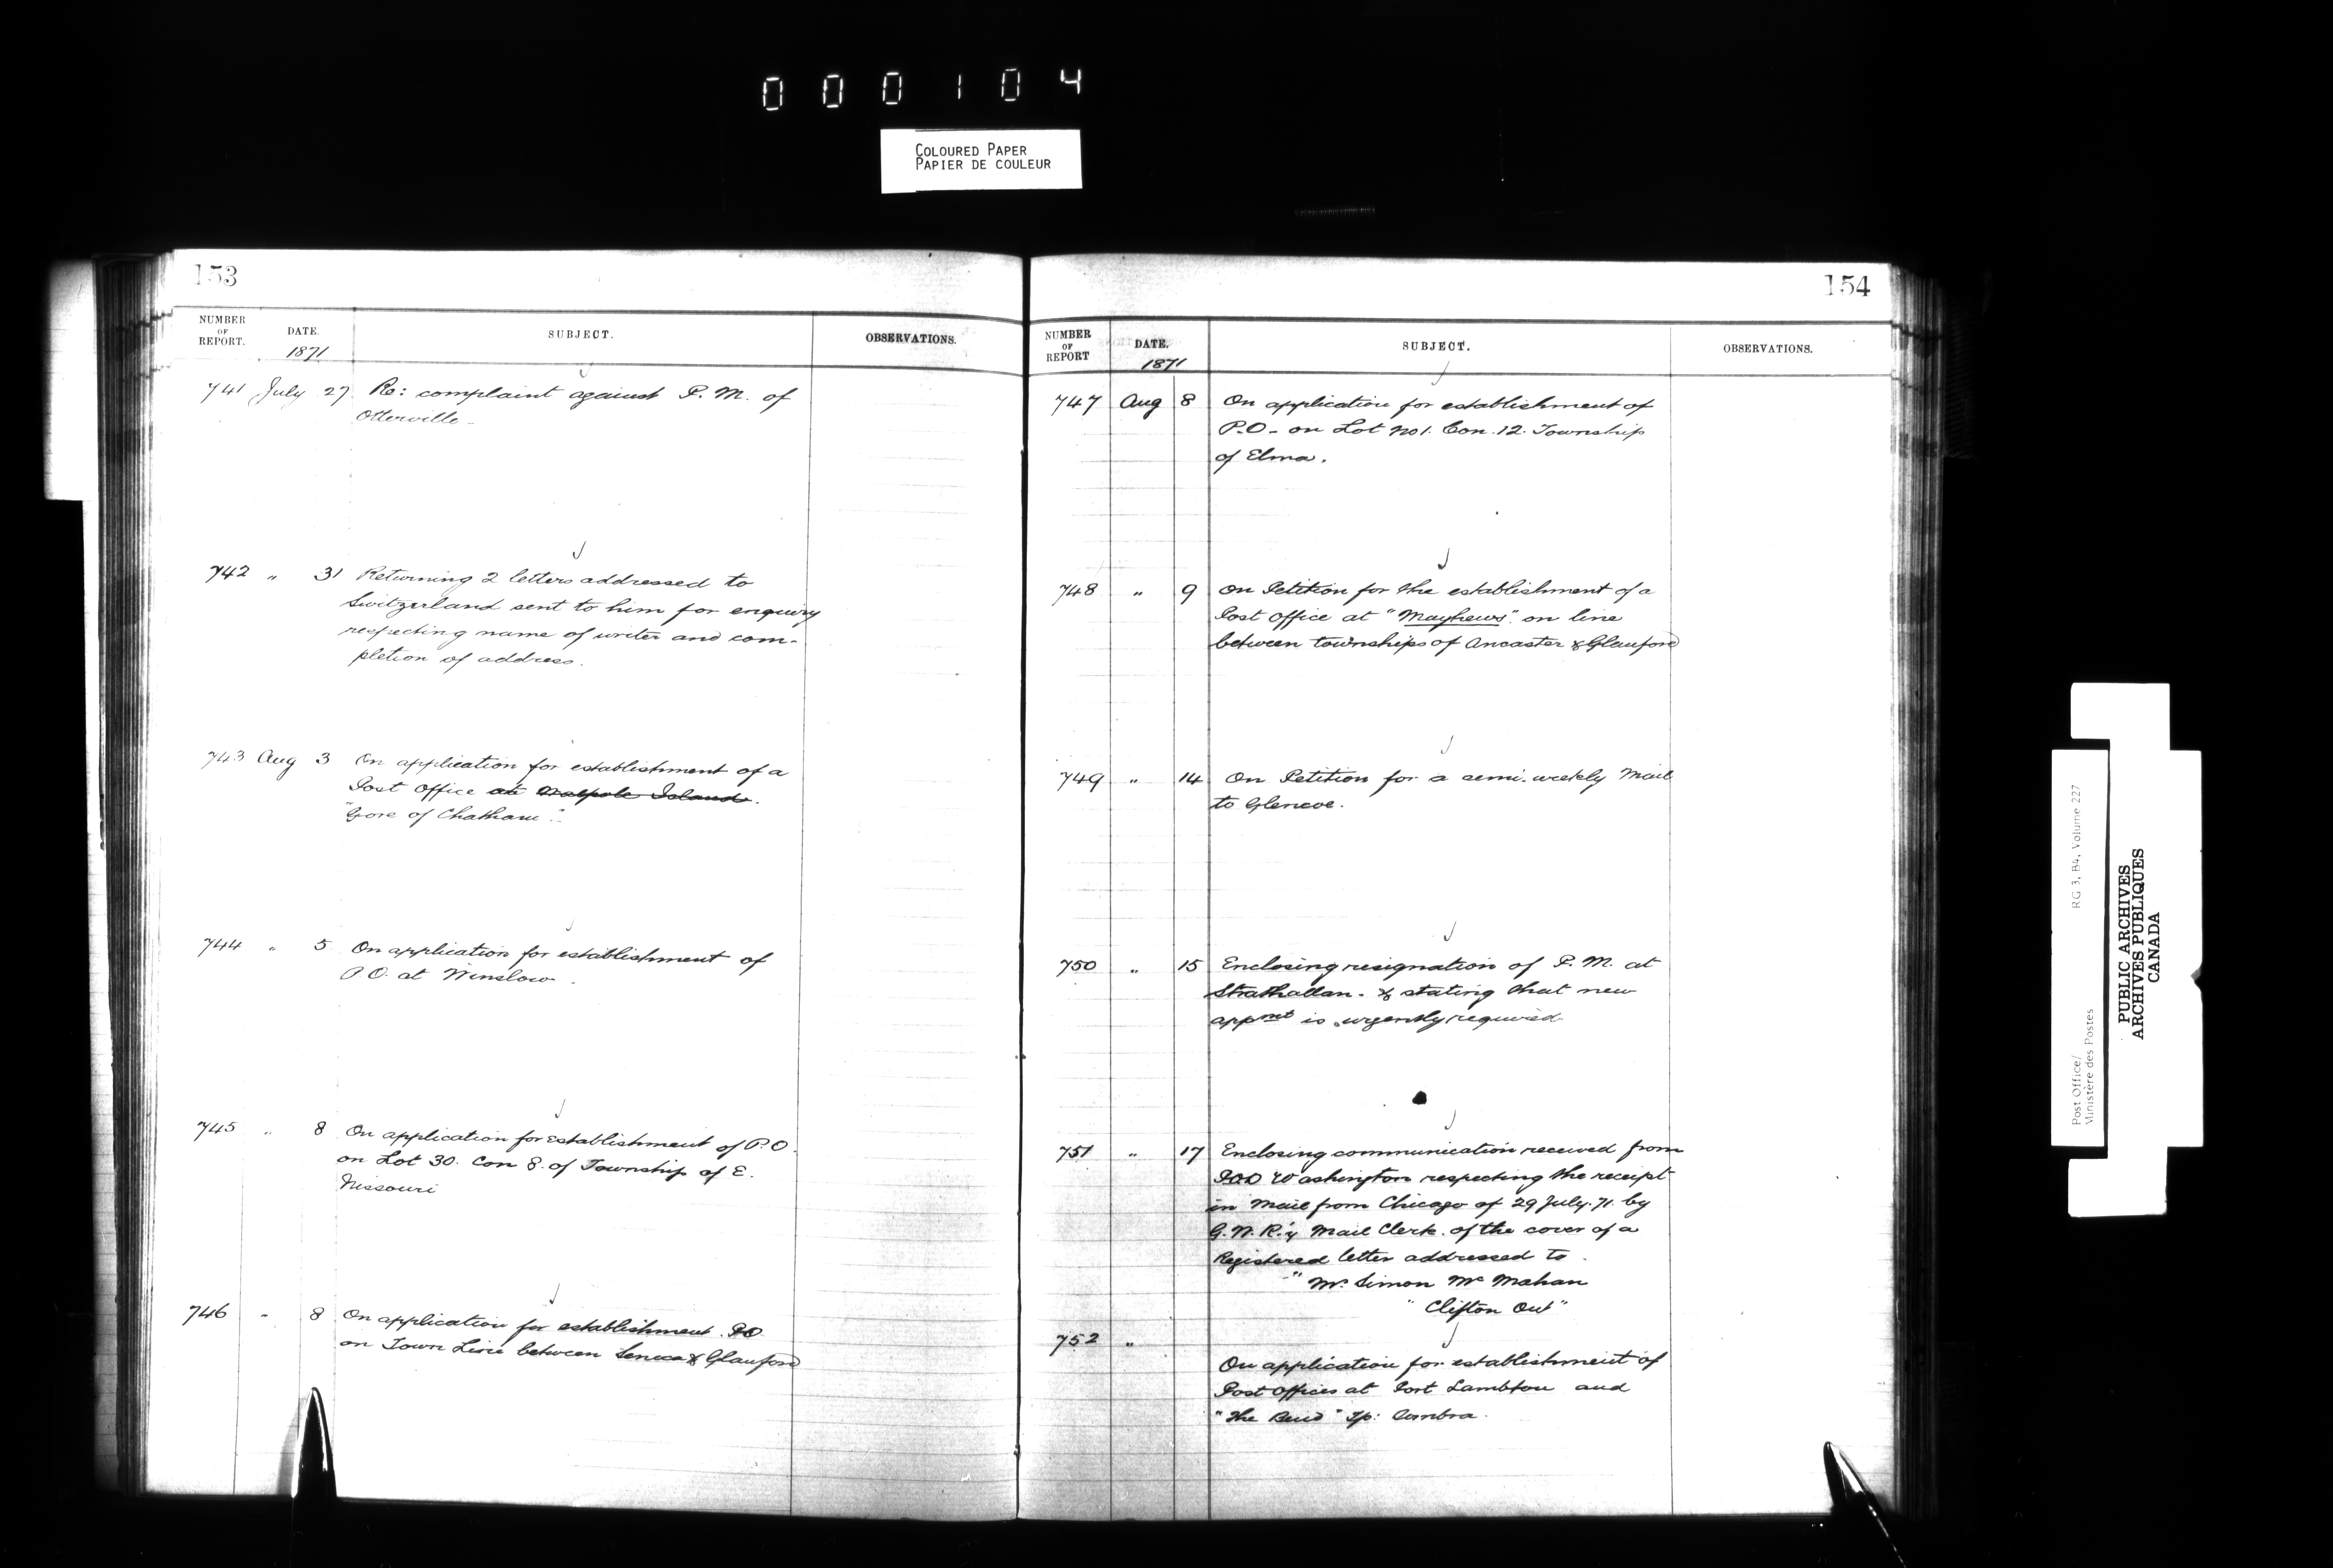 000104
COLOURED PAPER
PAPIER DE COULEUR
153
NUMBER OF REPORT. DATE. SUBJECT. OBSERVATIONS.
1871
741 July 27 Re: complaint against P. M. of
Otterville -
742 " 31 Returning 2 letters addressed to
Switzerland sent to him for enquiry
respecting name of writer and com-
pletion of address.
743 Aug 3 On application for establishment of a
Post Office at Walpole Island.
"Gore of Chatham".
744 " 5 On application for establishment of
P.O. at Winslow.
745 " 8 On application for establishment of P.O.
on Lot 30. Con 8. of Township of E.
Nissouri
746 " 8 On application for establishment PO
on Town Line between Seneca & Glanford
154
NUMBER OF REPORT DATE. SUBJECT. OBSERVATIONS.
1871
747 Aug 8 On application for establishment of
P.O - on Lot No 1. Con. 12. Township
of Elma.
748 " 9 On Petition for the establishment of a
Post Office at "Mayhews". on line
between townships of Ancaster & Glanford
749 " 14 On Petition for a semi-weekly Mail
to Glencoe.
750 " 15 Enclosing resignation of P. M. at
Strathallan - & stating that new
appmt is urgently required
751 " 17 Enclosing communication received from
POD Washington respecting the receipt
in Mail from Chicago of 29 July. 71. by
G. W. R.'y Mail Clerk. of the cover of a
Registered letter addressed to
"Mr. Simon Mc Mahan
"Clifton Ont"
752 "
On application for establishment of
Post Offices at Port Lambton and
"The Bend" Tp: Sombra.
Post Office/
Ministère des Postes
RG 3, B4, Volume 227
PUBLIC ARCHIVES
ARCHIVES PUBLIQUES
CANADA